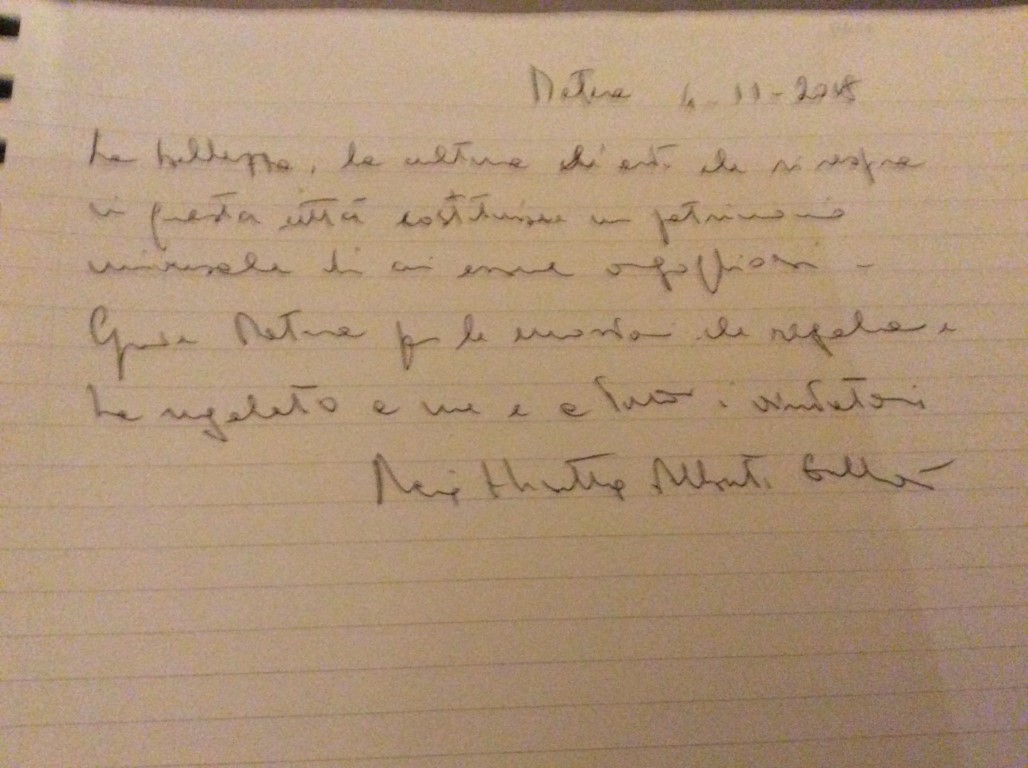 Matera 4-11-2018
La bellezza, la cultura che si respira
in questa città costituisce un patrimonio
universale di cui essere orgogliosi -
Grazie Matera per le emozioni che regala e
ha regalato a me e a tutti i visitatori
Maria